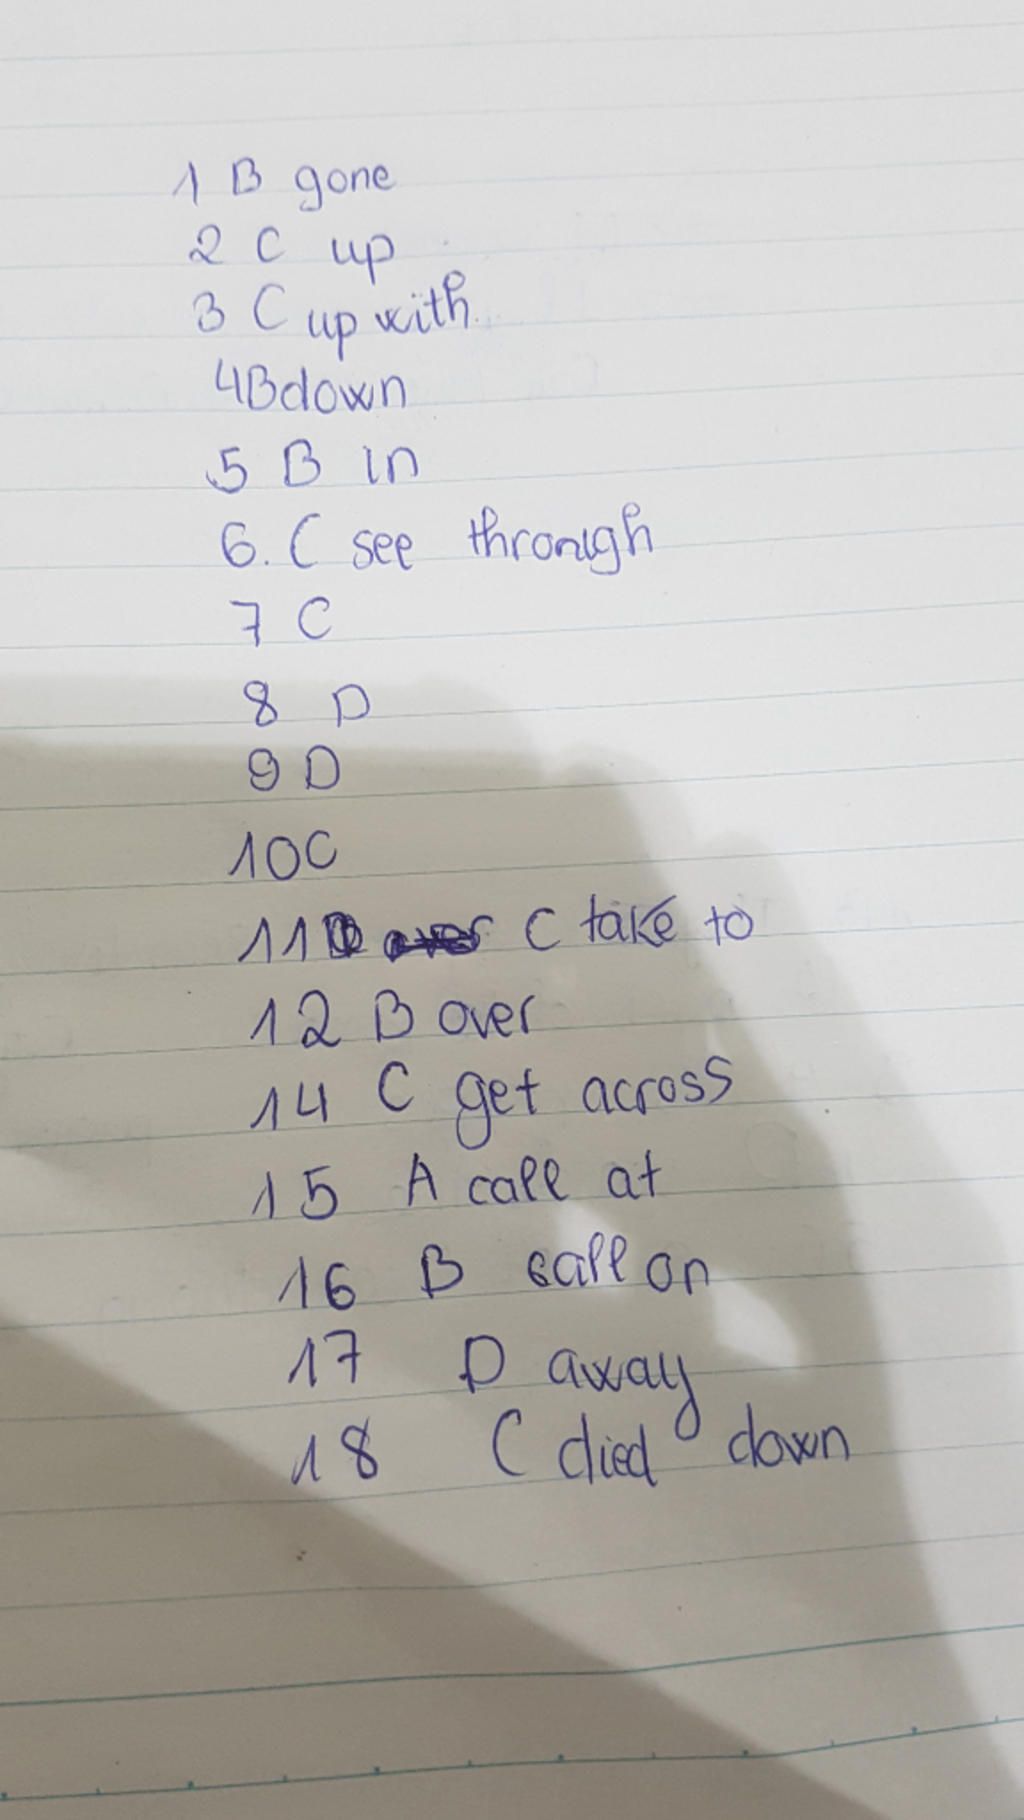 1 B gone
2 C up
3 C up with
4B down
5 B in
6. C see through
7 C
8 D
9 D
10C
11 C take to
12 B over
14 C get across
15 A call at
16 B call on
17 D away
18 C died down